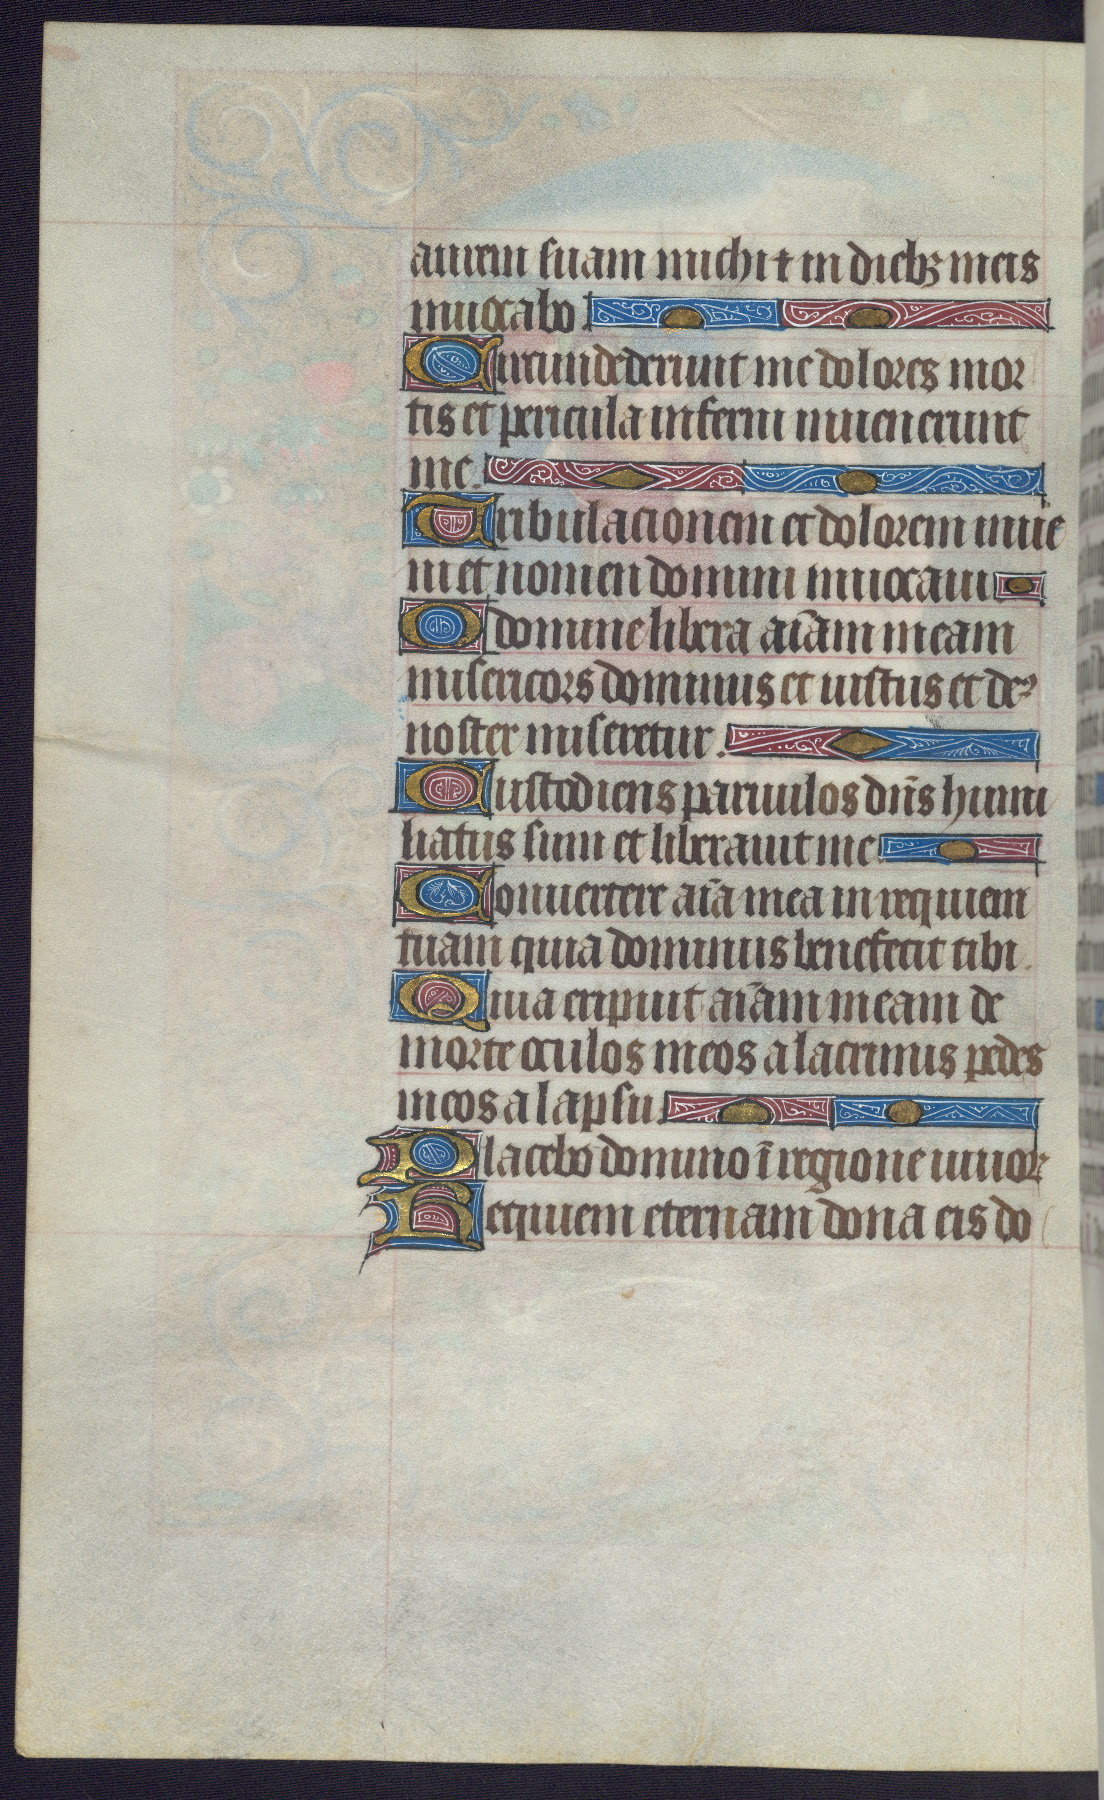 aurem suam michi ⁊ in diebꝫ meis
inuocabo
Circundederunt me dolores mor
tis et pericula inferni inuenerunt
me.
Tribulacionem et dolorem inue
ni et nomen domini inuocaui
O domine libera aīam meam
misericors dominus et iustus et deꝰ
noster miseretur.
Custodiens paruulos dn̄s humi
liatus sum et liberauit me
Conuertere aīa mea in requiem
tuam quia dominus benefecit tibi.
Quia eripuit aīam meam de
morte oculos meos a lacrimis pedes
meos a lapsu.
Placebo domino ī regione uiuoꝝ
Requiem eternam dona eis do